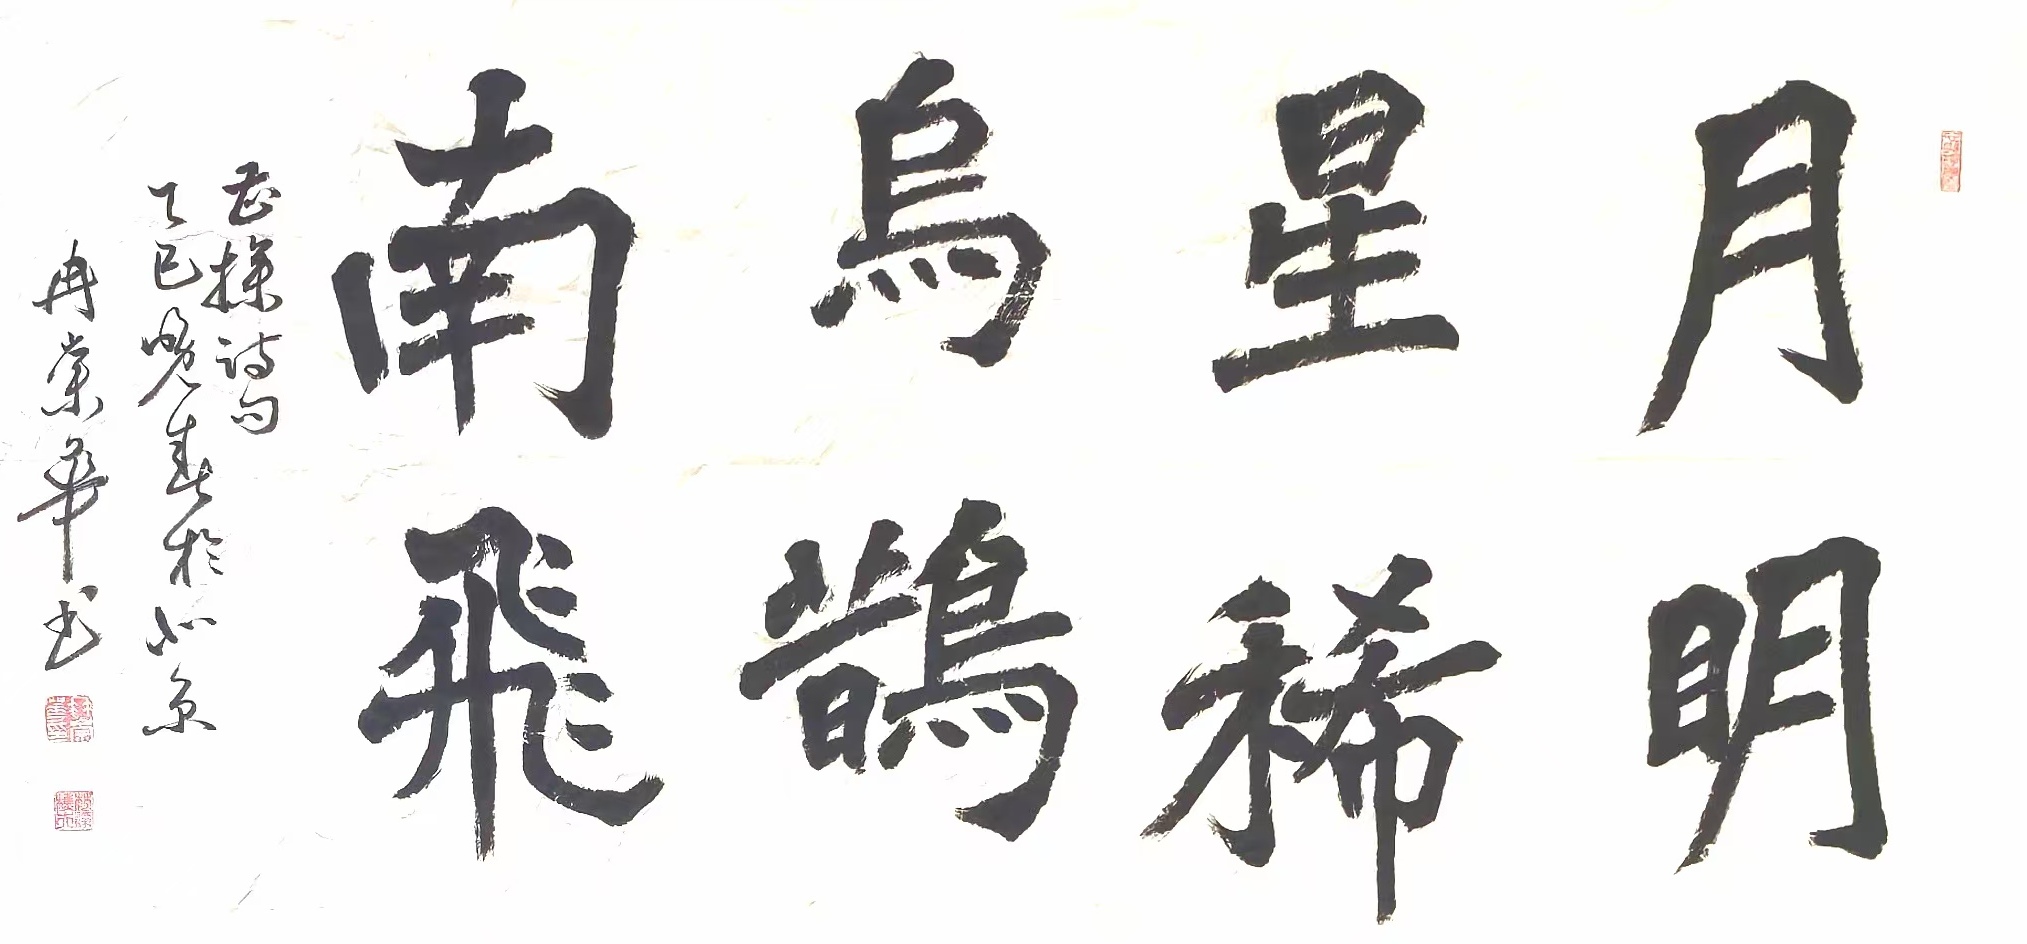 月明
星稀
烏鵲
南飛
曹操詩句
乙巳晚春於北京
冉崇華书